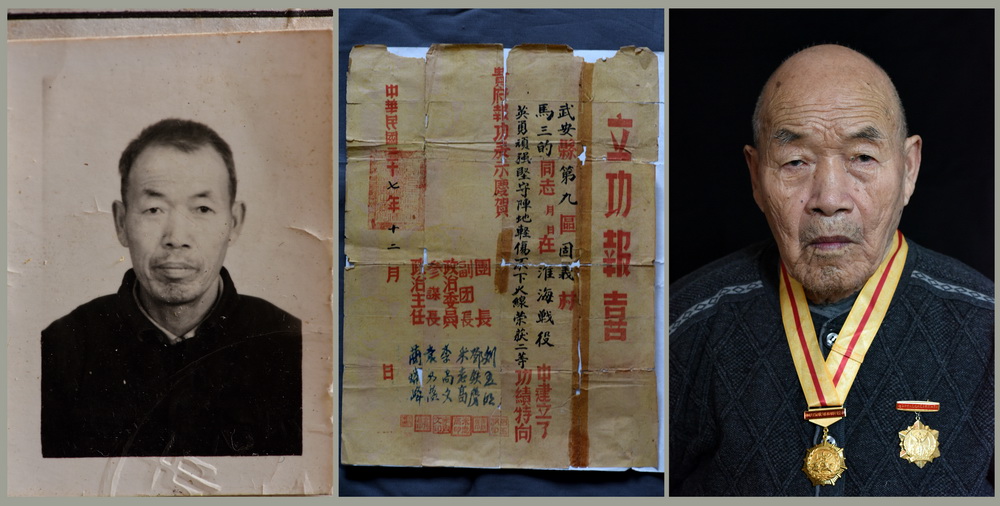 立功報喜
武安縣第九區固義村
馬三的同志 月 日在淮海戰役中建立了
英勇頑强堅守陣地輕傷不下火線荣获二等功績特向
貴府報功並示慶賀
團長
副团長
政治委員
參謀長
政治主任
中華民國三十七年十二月 日